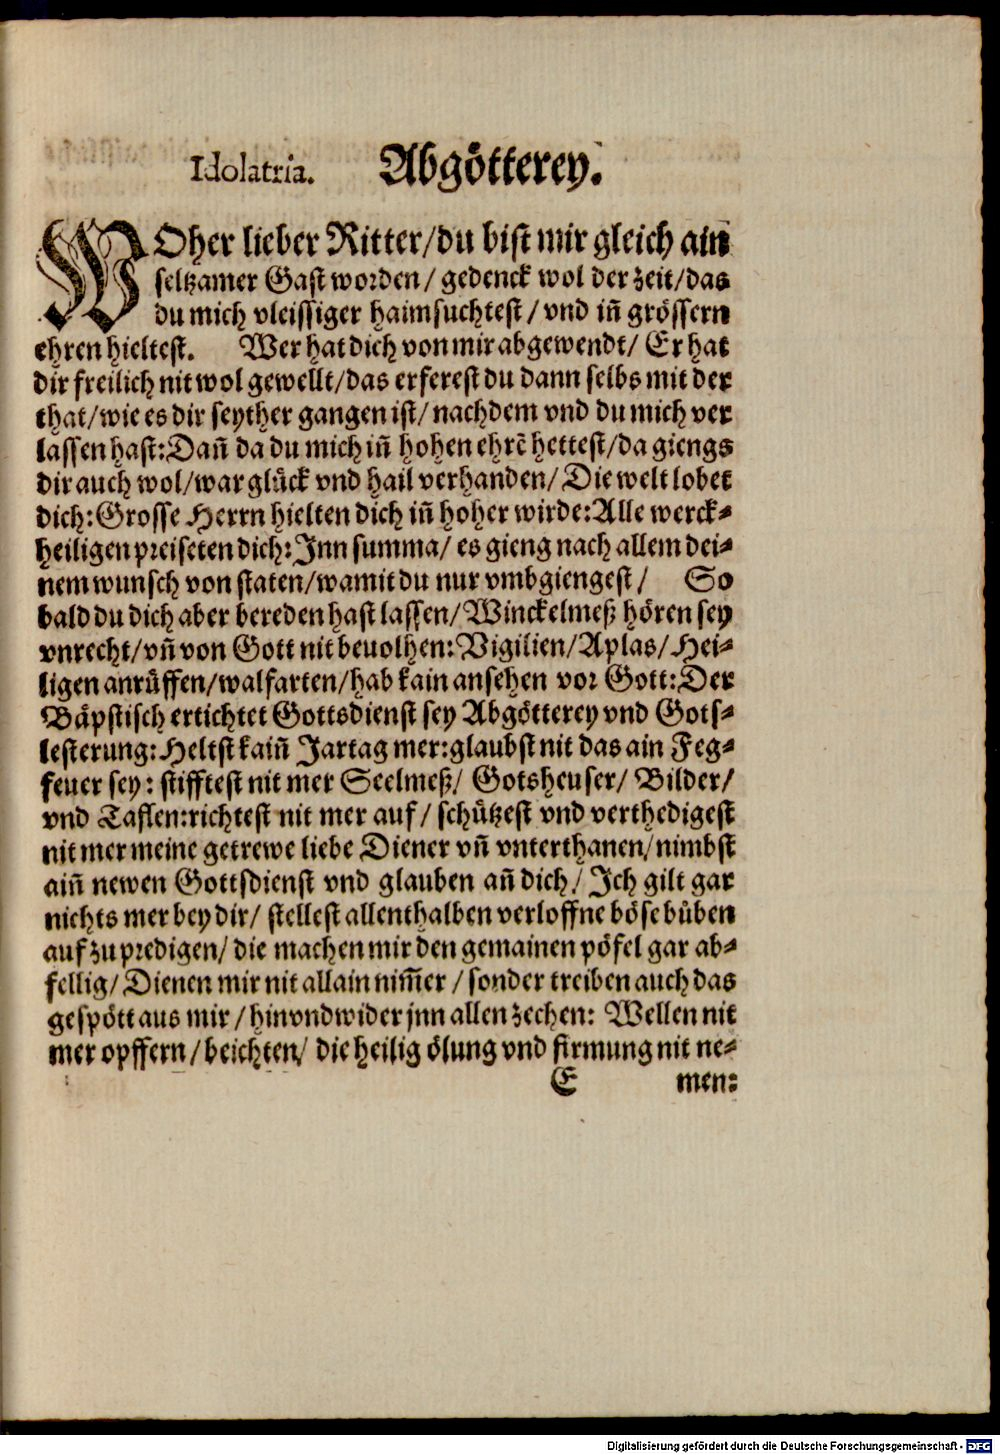 Idolatria. Abgötterey.
WOher lieber Ritter/du bist mir gleich ain
seltzamer Gast worden/ gedenck wol der zeit/das
du mich vleissiger haimsuchtest/ vnd iñ grössern
ehren hieltest. Wer hat dich von mir abgewendt/ Er hat
dir freilich nit wol gewellt/das erferest du dann selbs mit der
that/wie es dir seyther gangen ist/ nachdem vnd du mich ver
lassen hast: Dañ da du mich iñ hohen ehrẽ hettest/da giengs
dir auch wol/war glück vnd hail verhanden/ Die welt lobet
dich: Grosse Herrn hielten dich iñ hoher wirde: Alle werck-
heiligen preiseten dich: Jnn summa/ es gieng nach allem dei-
nem wunsch von staten/wamit du nur vmbgiengest/ So
bald du dich aber bereden hast lassen/ Winckelmeß hören sey
vnrecht/vñ von Gott nit beuolhen: Vigilien/ Aplas/ Hei-
ligen anrüffen/walfarten/hab kain ansehen vor Gott: Der
Bäpstisch ertichtet Gottsdienst sey Abgötterey vnd Gots-
lesterung: Heltst kaiñ Jartag mer: glaubst nit das ain Feg-
feuer sey: stifftest nit mer Seelmeß/ Gotsheuser/ Bilder/
vnd Taflen: richtest nit mer auf/ schützest vnd verthedigest
nit mer meine getrewe liebe Diener vñ vnterthanen/ nimbst
aiñ newen Gottsdienst vnd glauben añ dich/ Ich gilt gar
nichts mer bey dir/ stellest allenthalben verloffne böse büben
auf zu predigen/ die machen mir den gemainen pöfel gar ab-
fellig/ Dienen mir nit allain nim̃er/ sonder treiben auch das
gespött aus mir/ hin vnd wider jnn allen zechen: Wellen nit
mer opffern/ beichten/ die heilig ölung vnd firmung nit ne-
E men:
Digitalisierung gefördert durch die Deutsche Forschungsgemeinschaft - DFG